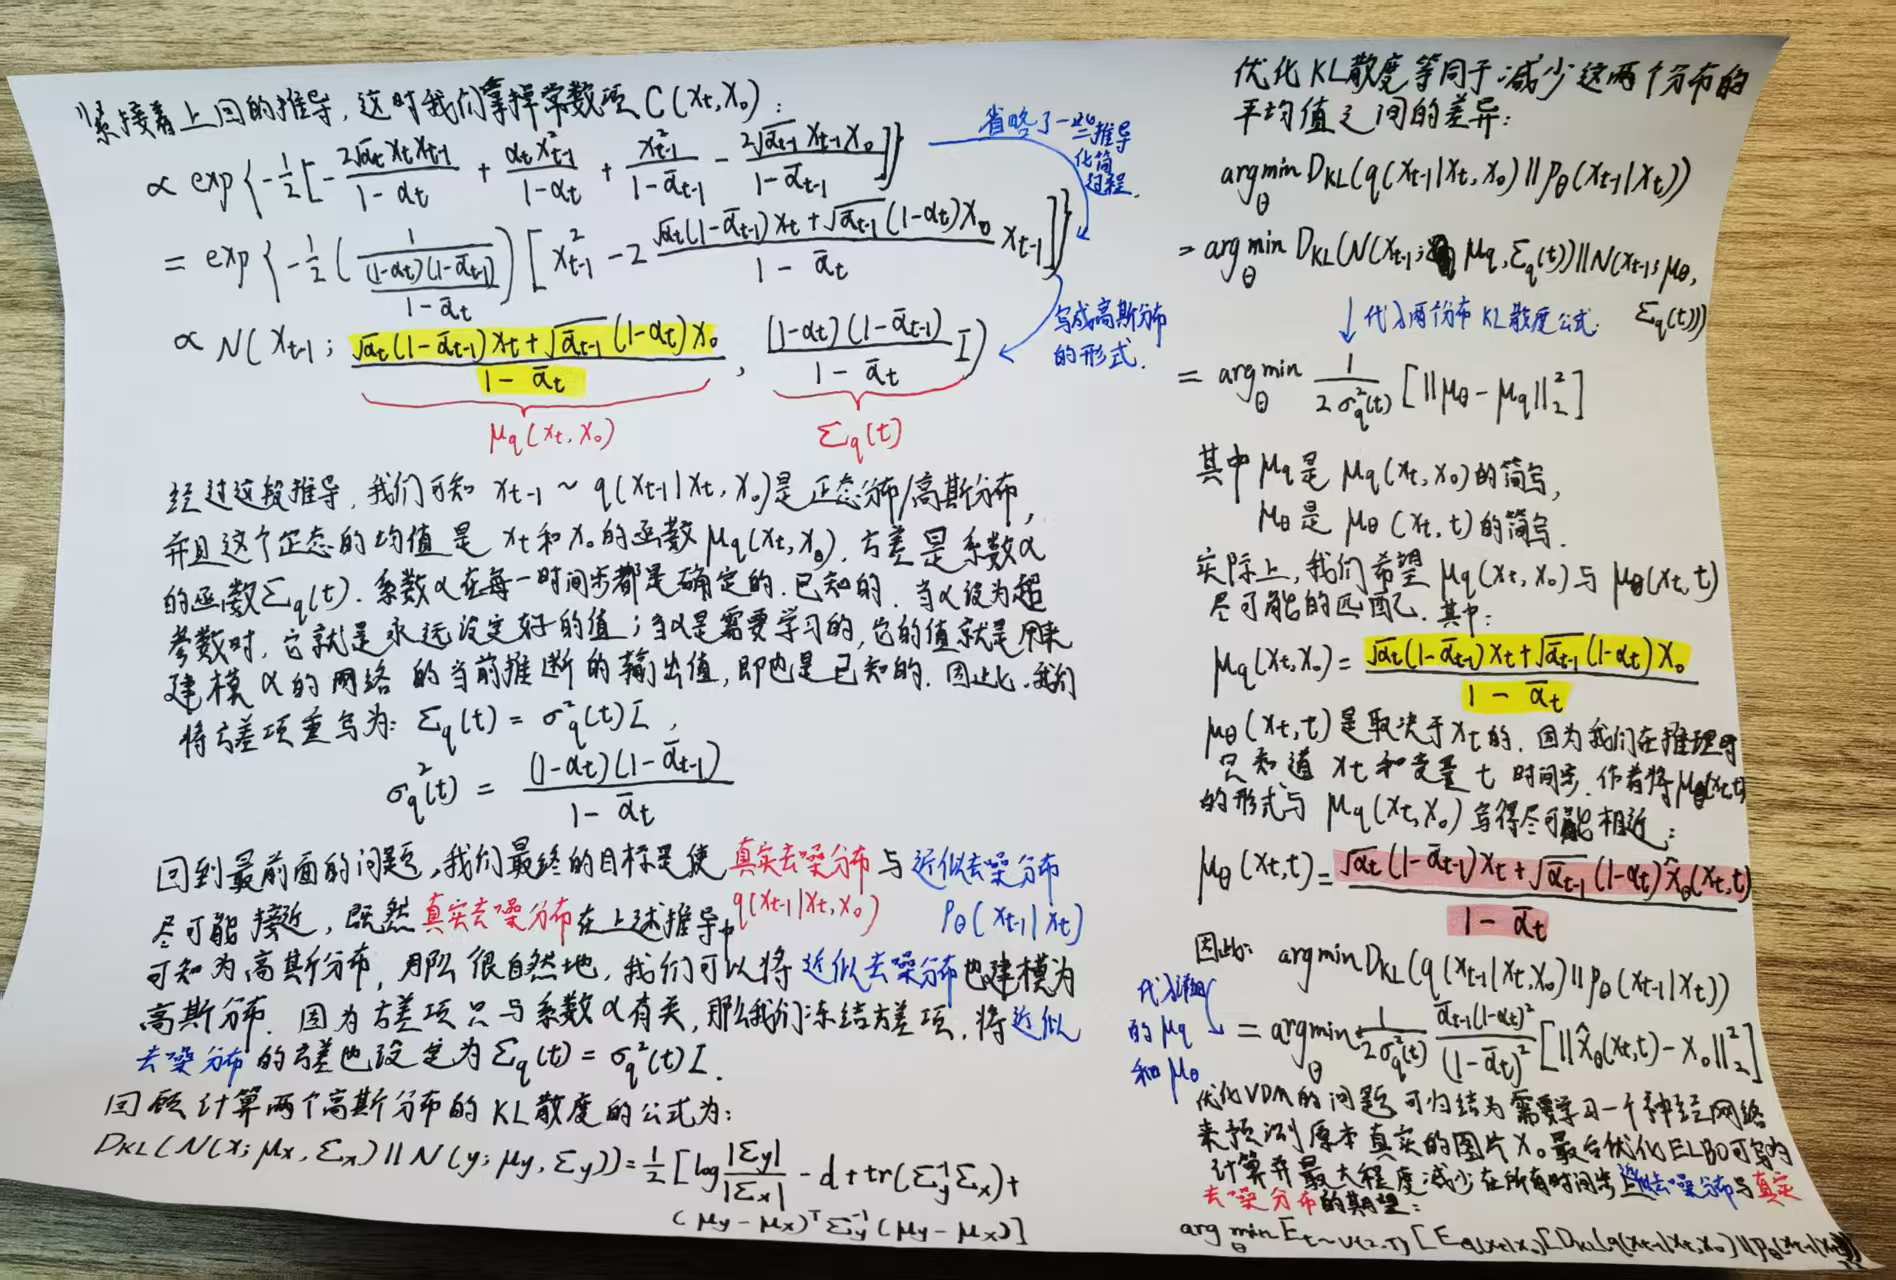 紧接着上回的推导，这时我们拿掉常数项 C(xt, x0)：
∝ exp{-1/2[-2√αt xt xt-1/(1-αt) + αt x²t-1/(1-αt) + x²t-1/(1-ᾱt-1) - 2√ᾱt-1 xt-1 x0/(1-ᾱt-1)]}
省略了一些推导
化简
过程.
= exp{-1/2(1/((1-αt)(1-ᾱt-1)/(1-ᾱt)))[x²t-1 - 2 (√αt(1-ᾱt-1)xt + √ᾱt-1(1-αt)x0)/(1-ᾱt) xt-1]}
∝ N(xt-1; (√αt(1-ᾱt-1)xt + √ᾱt-1(1-αt)x0)/(1-ᾱt), (1-αt)(1-ᾱt-1)/(1-ᾱt) I)
写成高斯分布
的形式.
μq(xt, x0) Σq(t)
经过这段推导，我们可知 xt-1 ~ q(xt-1|xt, x0)是正态分布/高斯分布,
并且这个正态的均值是 xt和x0的函数 μq(xt, x0). 方差是系数α
的函数Σq(t). 系数α在每一时间步都是确定的.已知的. 当α设为超
参数时，它就是永远设定好的值；当α是需要学习的，它的值就是用来
建模α的网络的当前推断的输出值，即也是已知的. 因此，我们
将方差项重写为: Σq(t) = σ²q(t)I ,
σ²q(t) = (1-αt)(1-ᾱt-1)/(1-ᾱt)
回到最前面的问题，我们最终的目标是使真实去噪分布与近似去噪分布
q(xt-1|xt, x0) pθ(xt-1|xt)
尽可能接近，既然真实去噪分布在上述推导中
可知为高斯分布，那么很自然地，我们可以将近似去噪分布也建模为
高斯分布. 因为方差项只与系数α有关，那么我们冻结方差项. 将近似
去噪分布的方差也设定为Σq(t) = σ²q(t)I.
回顾计算两个高斯分布的KL散度的公式为：
DKL(N(x; μx, Σx)||N(y; μy, Σy)) = 1/2[log |Σy|/|Σx| - d + tr(Σy⁻¹Σx) +
(μy-μx)ᵀΣy⁻¹(μy-μx)]
优化KL散度等同于减少这两个分布的
平均值之间的差异：
argmin θ DKL(q(xt-1|xt, x0)||pθ(xt-1|xt))
= argmin θ DKL(N(xt-1; μq, Σq(t))||N(xt-1; μθ,
Σq(t)))
↓代入两个分布KL散度公式:
= argmin θ 1/(2σ²q(t)) [||μθ-μq||²₂]
其中μq是 μq(xt, x0)的简写,
μθ是 μθ(xt, t)的简写.
实际上，我们希望μq(xt, x0)与μθ(xt, t)
尽可能的匹配. 其中:
μq(xt, x0) = (√αt(1-ᾱt-1)xt + √ᾱt-1(1-αt)x0)/(1-ᾱt)
μθ(xt, t)是取决于xt的. 因为我们在推理时
只知道 xt和变量 t 时间步. 作者将μθ(xt, t)
的形式与 μq(xt, x0)写得尽可能相近：
μθ(xt, t) = (√αt(1-ᾱt-1)xt + √ᾱt-1(1-αt)x̂θ(xt, t))/(1-ᾱt)
因此: argmin DKL(q(xt-1|xt, x0)||pθ(xt-1|xt))
代入
的μq
和μθ
= argmin θ 1/(2σ²q(t)) ᾱt-1(1-αt)²/(1-ᾱt)² [||x̂θ(xt, t)-x0||²₂]
优化VDM的问题可归结为需要学习一个神经网络
来预测原本真实的图片x0. 最后优化ELBO可写为
计算并最大程度减少在所有时间步上近似去噪分布与真实
去噪分布的期望：
argmin θ Et~U(2,T) [Eq(xt|x0)[DKL(q(xt-1|xt, x0)||pθ(xt-1|xt))